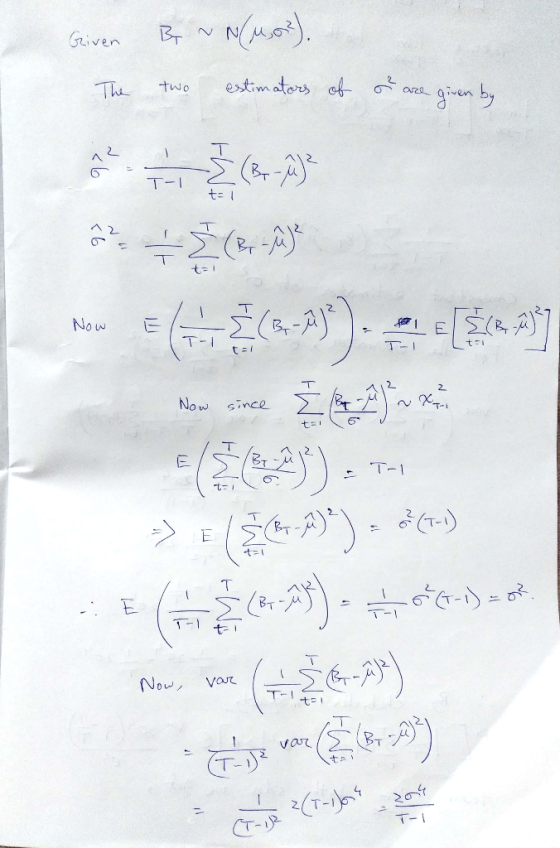 Given B_T ~ N(μ,σ²).
The two estimators of σ² are given by
σ̂² = 1/(T-1) Σ_{t=1}^{T} (B_T - μ̂)²
σ̂² = 1/T Σ_{t=1}^{T} (B_T - μ̂)²
Now E(1/(T-1) Σ_{t=1}^{T} (B_T - μ̂)²) = 1/(T-1) E[Σ_{t=1}^{T} (B_T - μ̂)²]
Now since Σ_{t=1}^{T} ((B_T - μ̂)/σ)² ~ χ²_{T-1}
E(Σ_{t=1}^{T} ((B_T - μ̂)/σ)²) = T-1
=> E(Σ_{t=1}^{T} (B_T - μ̂)²) = σ²(T-1)
∴ E(1/(T-1) Σ_{t=1}^{T} (B_T - μ̂)²) = 1/(T-1) σ²(T-1) = σ².
Now, var(1/(T-1) Σ_{t=1}^{T} (B_T - μ̂)²)
= 1/(T-1)² var(Σ_{t=1}^{T} (B_T - μ̂)²)
= 1/(T-1)² 2(T-1)σ⁴ = 2σ⁴/(T-1)